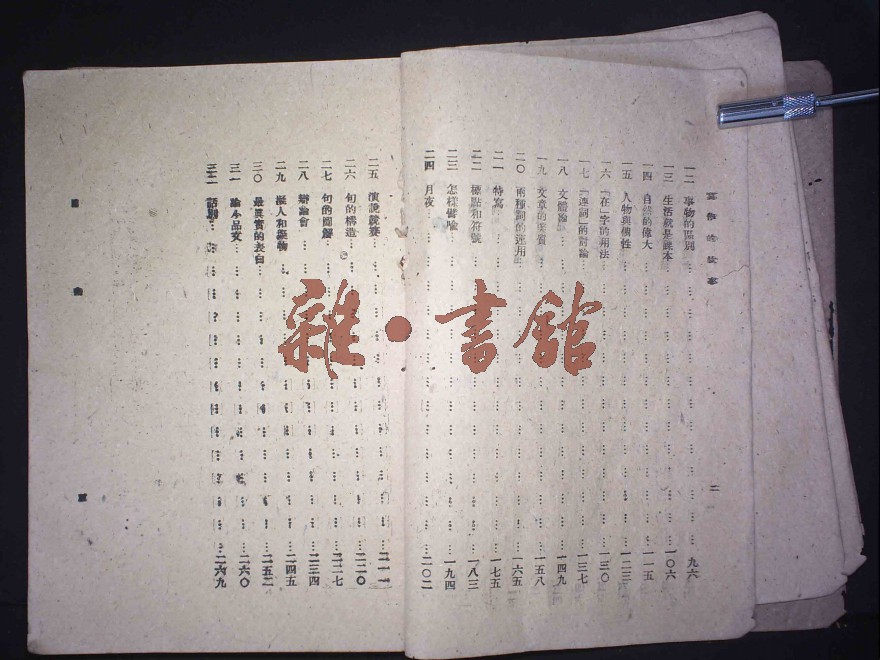 二
一二 事物的區別 九六
一三 生活就是課本 一〇六
一四 自然的偉大 一一五
一五 人物與個性 一二三
一六 「在」字的用法 一三〇
一七 「連詞」的討論 一三七
一八 文體論 一四九
一九 文章的美質 一五八
二〇 兩種詞的運用 一六五
二一 特寫 一七五
二二 標點和符號 一八三
二三 怎樣譬喻 一九四
二四 月夜 二〇二
二五 演說競賽 二一一
二六 句的構造 二二〇
二七 句的圖解 二二七
二八 辯論會 二三四
二九 擬人和擬物 二四五
三〇 最真實的表白 二五二
三一 論小品文 二六〇
三二 話劇 二六九
雜·書館